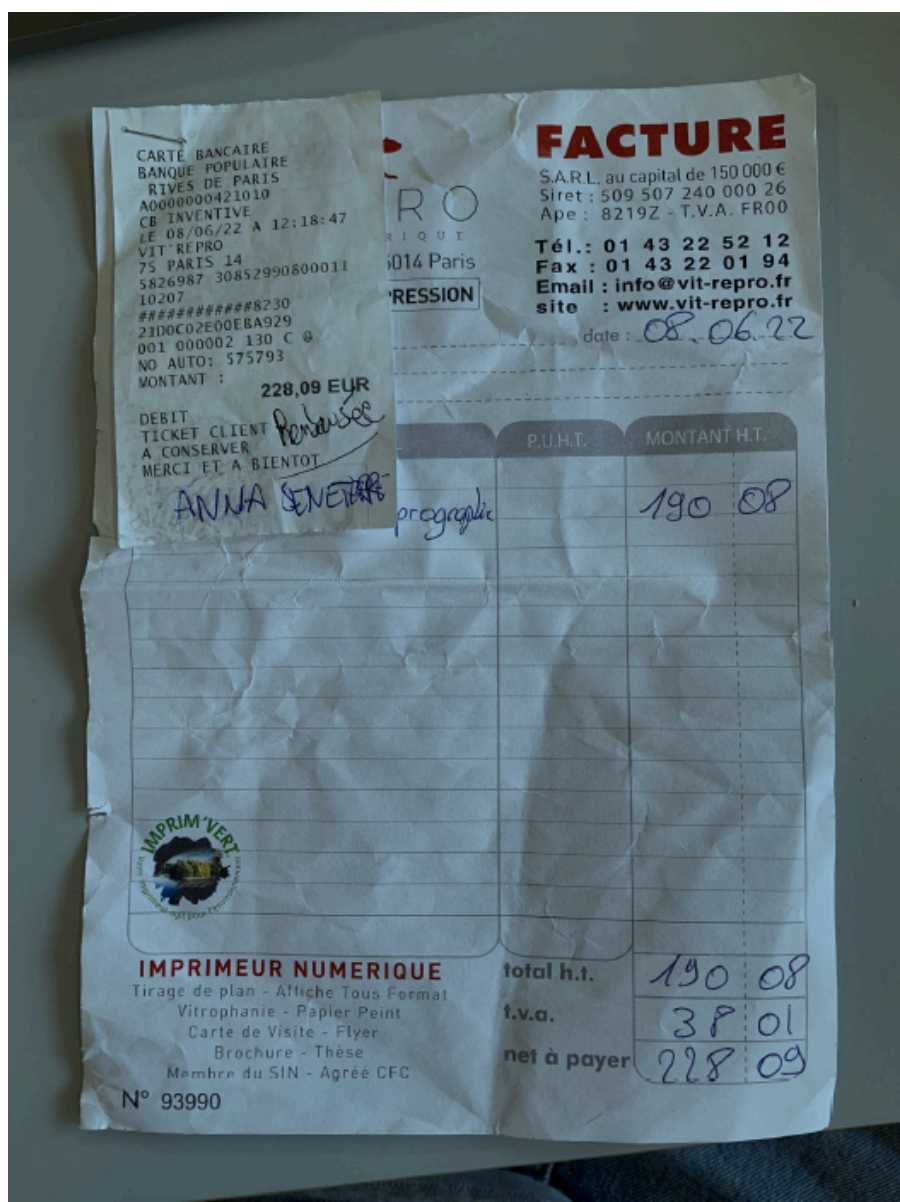 CARTE BANCAIRE
BANQUE POPULAIRE
RIVES DE PARIS
A0000000421010
CB INVENTIVE
LE 08/06/22 A 12:18:47
VIT'REPRO
75 PARIS 14
5826987 30852990800011
10207
############8230
21D0C02E00EBA929
001 000002 130 C @
NO AUTO: 575793
MONTANT :
228,09 EUR
DEBIT
TICKET CLIENT
A CONSERVER
MERCI ET A BIENTOT
ANNA
RO
RIQUE
5014 Paris
PRESSION
FACTURE
S.A.R.L. au capital de 150 000 €
Siret : 509 507 240 000 26
Ape : 8219Z - T.V.A. FR00
Tél.: 01 43 22 52 12
Fax : 01 43 22 01 94
Email : info@vit-repro.fr
site : www.vit-repro.fr
date : 08.06.22
P.U.H.T. MONTANT H.T.
prographie 190 08
IMPRIM'VERT
IMPRIMEUR NUMERIQUE
Tirage de plan - Affiche Tous Format
Vitrophanie - Papier Peint
Carte de Visite - Flyer
Brochure - Thèse
Membre du SIN - Agréé CFC
N° 93990
total h.t. 190 08
t.v.a. 38 01
net à payer 228 09